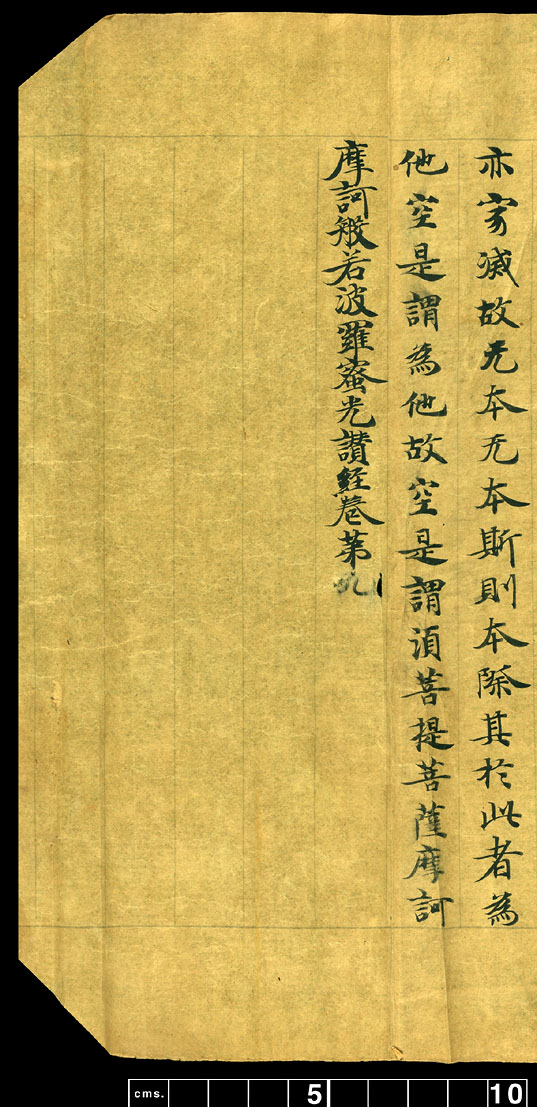 亦寂滅故无本无本斯則本際其於此者為
他空是謂為他故空是謂須菩提菩薩摩訶
摩訶般若波羅蜜光讚經卷第九
cms. 5 10